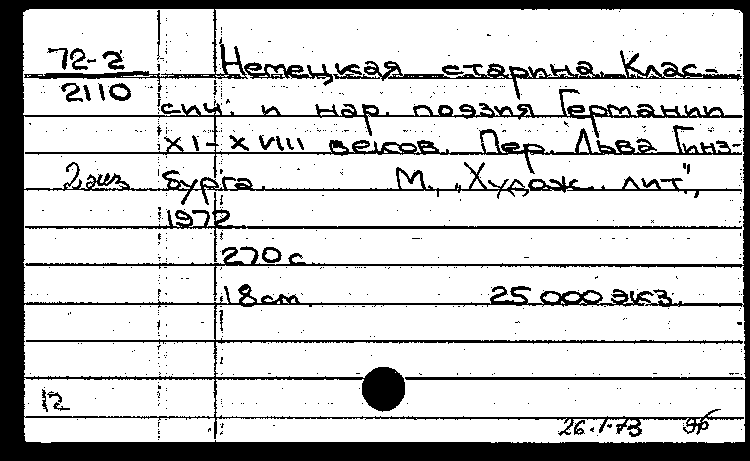 72-2
2110
Немецкая старина. Клас-
сич. и нар. поэзия Германии
XI-XVIII веков. Пер. Льва Гинз-
2 экз бурга. М., "Худож. лит.",
1972
270 с.
18 cm. 25 000 экз.
12
26.1.73